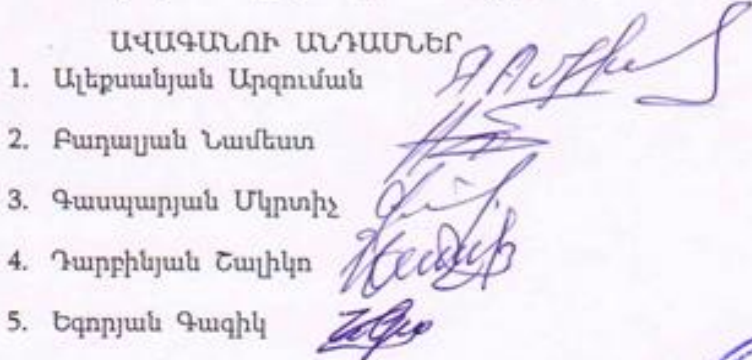 ԱՎԱԳԱՆՈՒ ԱՆԴԱՄՆԵՐ
1. Ալեքսանյան Արզուման
2. Բադալյան Նամեստ
3. Գասպարյան Մկրտիչ
4. Դարբինյան Շալիկո
5. Եգորյան Գագիկ